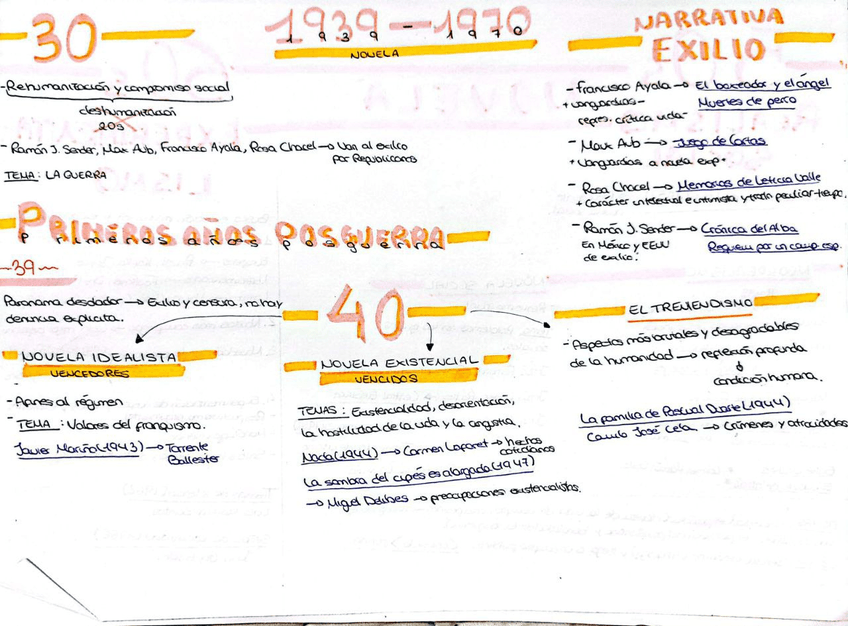 30
- Rehumanización y compromiso social
deshumanización
20s
- Ramón J. Sender, Max Aub, Francisco Ayala, Rosa Chacel → Van al exilio
por Republicanos
TEMA: LA GUERRA
1939-1970
NOVELA
NARRATIVA
EXILIO
- Francisco Ayala → El boxeador y el ángel
+ vanguardias - Muertes de perro
repres. crítica vida
- Max Aub → Juego de Cartas
+ vanguardias a nada exp.
- Rosa Chacel → Memorias de Leticia Valle
+ carácter intelectual e intimista y tratn peculiar tiempo.
- Ramón J. Sender → Crónica del Alba
En México y EEUU Requiem por un camp. esp.
de exilio.
PRIMEROS AÑOS POSGUERRA
-39-
Panorama desolador → Exilio y censura, no hay
denuncia explícita.
NOVELA IDEALISTA
VENCEDORES
- Afines al régimen
- TEMA: Valores del franquismo.
Javier Mariño (1943) → Torrente
Ballester
40
NOVELA EXISTENCIAL
VENCIDOS
TEMAS: Existencialidad, desorientación,
la hostilidad de la vida y la angustia.
Nada (1944) → Carmen Laforet → hechos
cotidianos
La sombra del ciprés es alargada (1947)
→ Migel Delibes → preocupaciones existencialistas.
EL TREMENDISMO
- Aspectos más brutales y desagradables
de la humanidad → reflexión profunda
↓
condición humana.
La familia de Pascual Duarte (1944)
Camilo José Cela → Crímenes y atrocidades